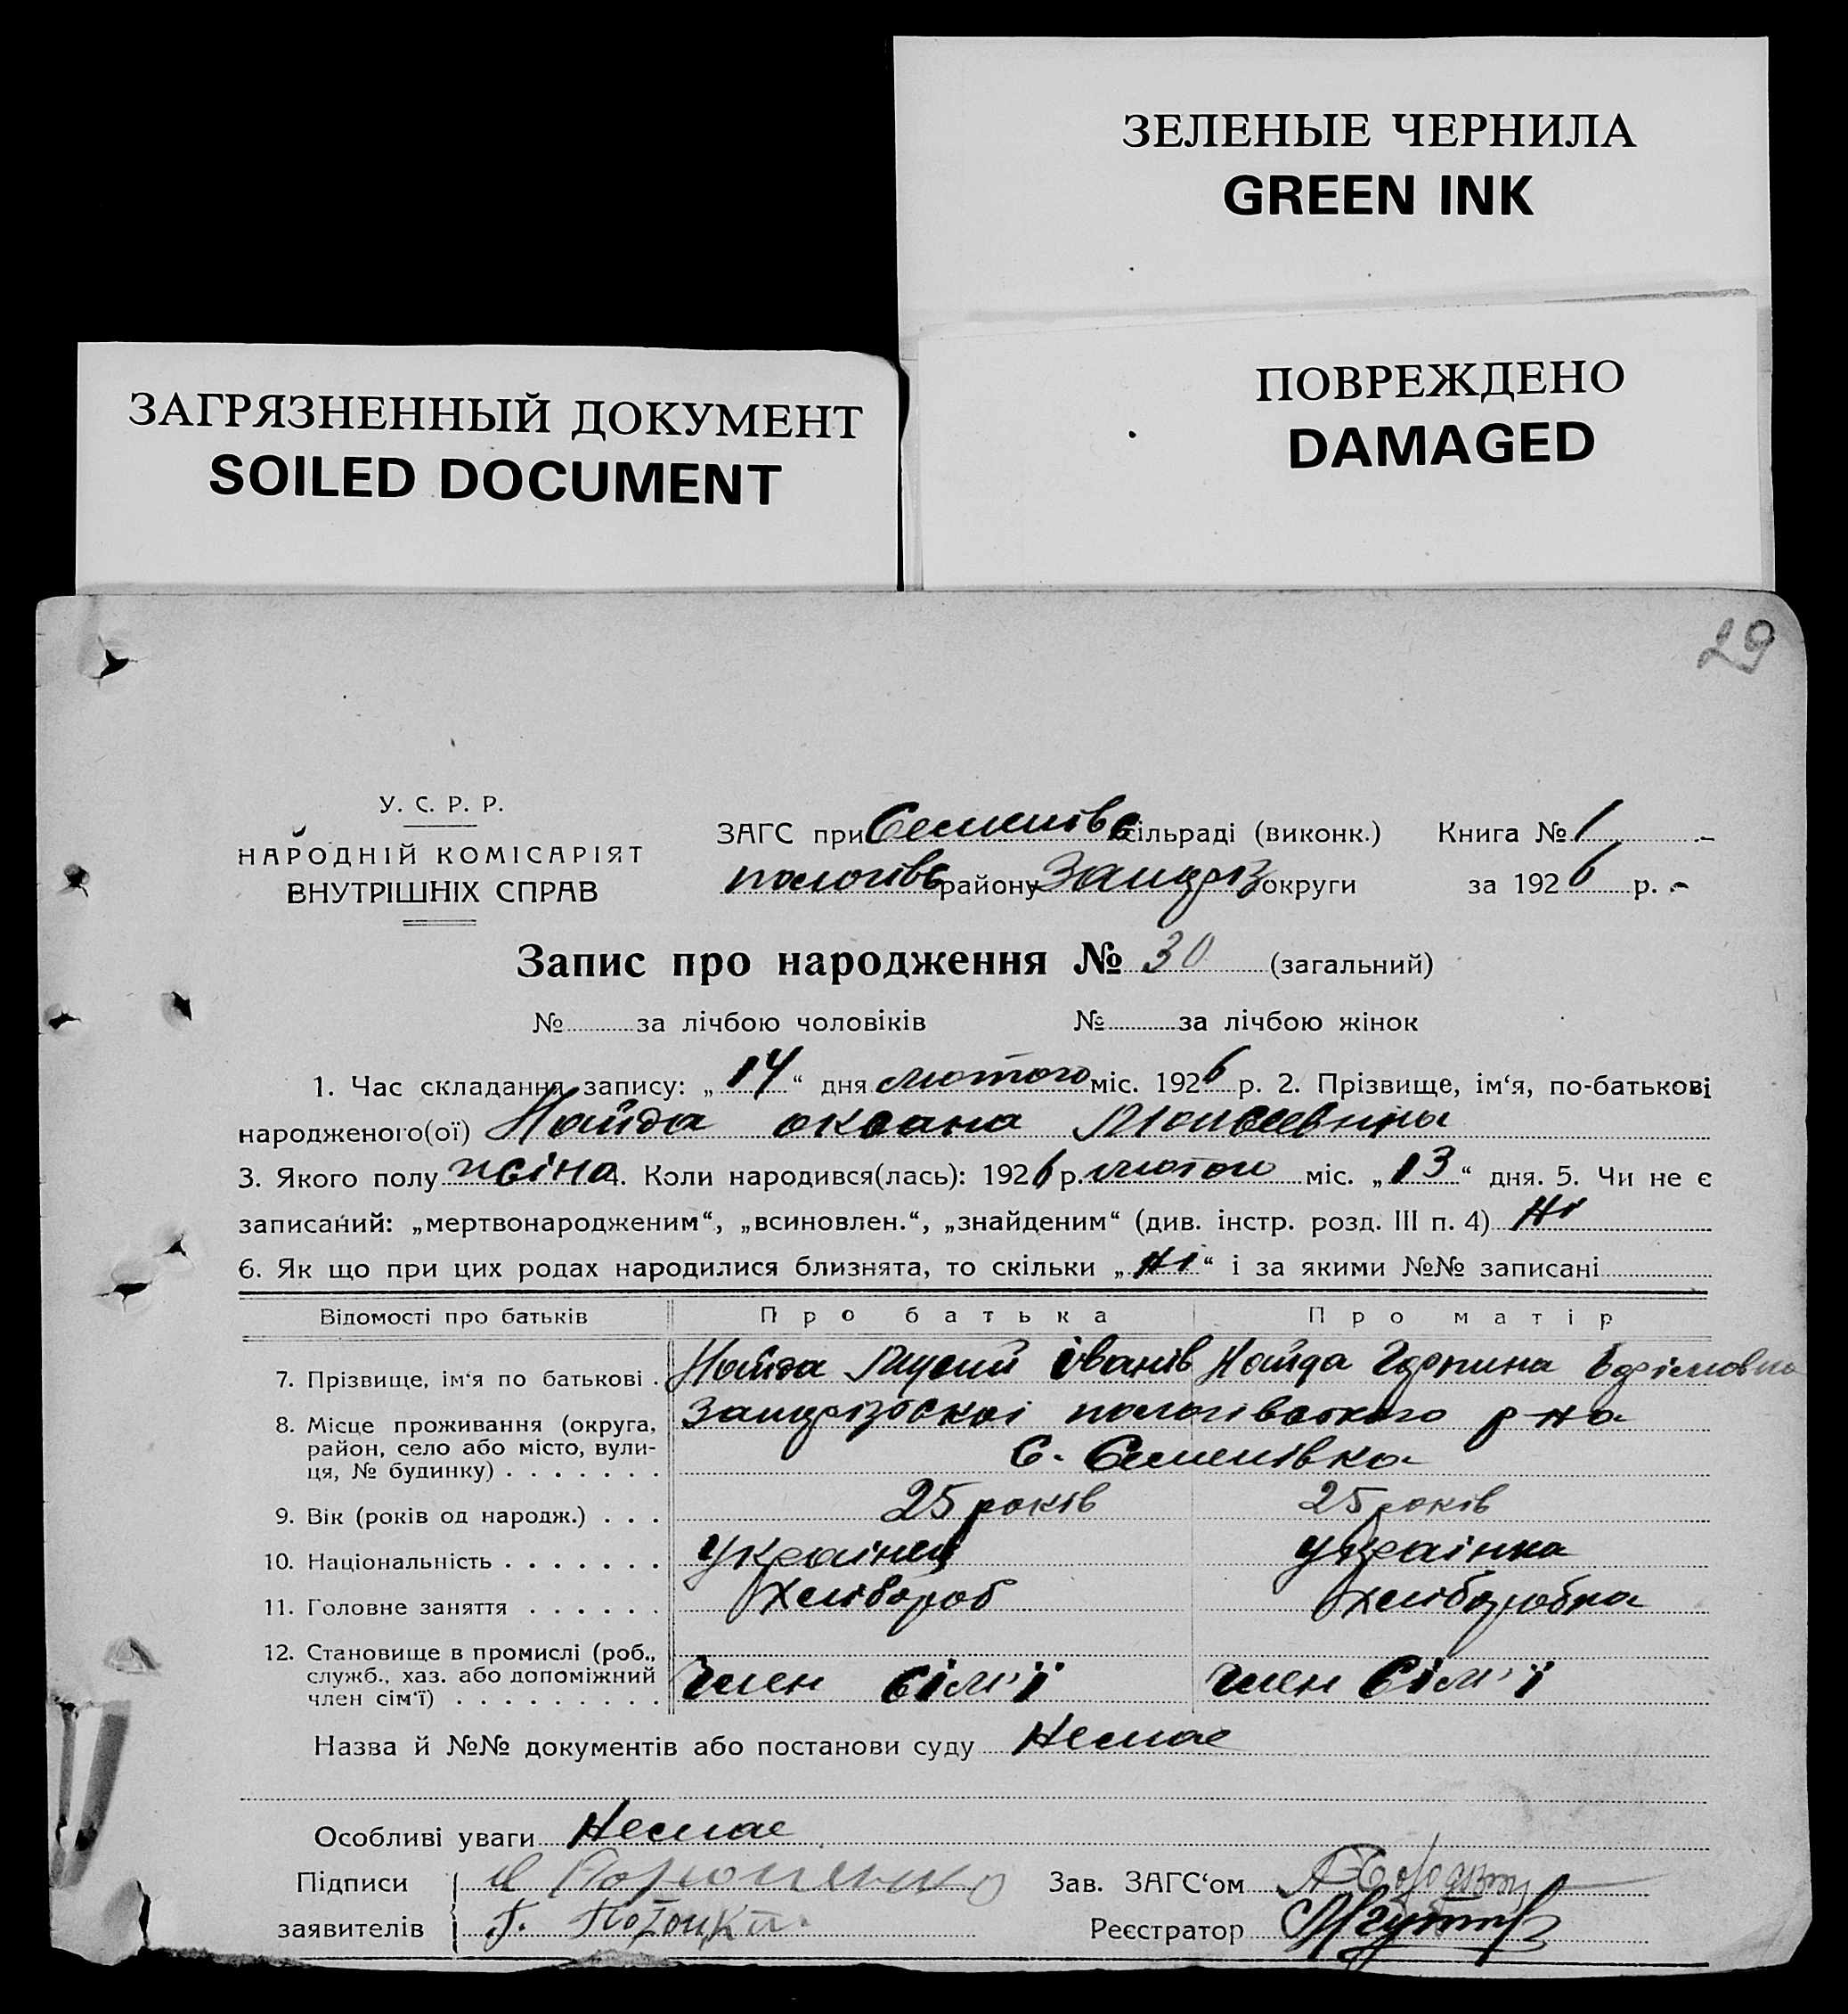 ЗЕЛЕНЫЕ ЧЕРНИЛА
GREEN INK
ПОВРЕЖДЕНО
DAMAGED
ЗАГРЯЗНЕННЫЙ ДОКУМЕНТ
SOILED DOCUMENT
29
У. С. Р. Р.
НАРОДНІЙ КОМІСАРІЯТ
ВНУТРІШНІХ СПРАВ
ЗАГС при Семенівс сільраді (виконк.) Книга № 1
пологівс району Запоріз округи за 1926 р.
Запис про народження № 30 (загальний)
№ за лічбою чоловіків № за лічбою жінок
1. Час складання запису: „14“ дня лютого міс. 1926 р. 2. Прізвище, ім‘я, по-батькові
народженого(ої) Найда оксана Моисеевны
3. Якого полу жіно 4. Коли народився(лась): 1926 р. лютого міс. „13“ дня. 5. Чи не є
записаний: „мертвонародженим“, „всиновлен.“, „знайденим“ (див. інстр. розд. III п. 4) Ні
6. Як що при цих родах народилися близнята, то скільки „Ні“ і за якими №№ записані
Відомості про батьків Про батька Про матір
7. Прізвище, ім‘я по батькові . Найда Мусий іванів Найда Горпина
8. Місце проживання (округа, Запорізоскої пологівського р-на
район, село або місто, вули-
ця, № будинку) . . . . . . . С. Семенівка
9. Вік (років од народж.) . . . 25 років 25 років
10. Національність . . . . . . . Українец Українка
11. Головне заняття . . . . . . Хлібороб Хліборобка
12. Становище в промислі (роб.,
служб., хаз. або допоміжний
член сім‘ї) . . . . . . . . . член сім'ї член сім'ї
Назва й №№ документів або постанови суду Немае
Особливі уваги Немае
Підписи Зав. ЗАГС‘ом
заявителів Г. Потоцкій Реєстратор